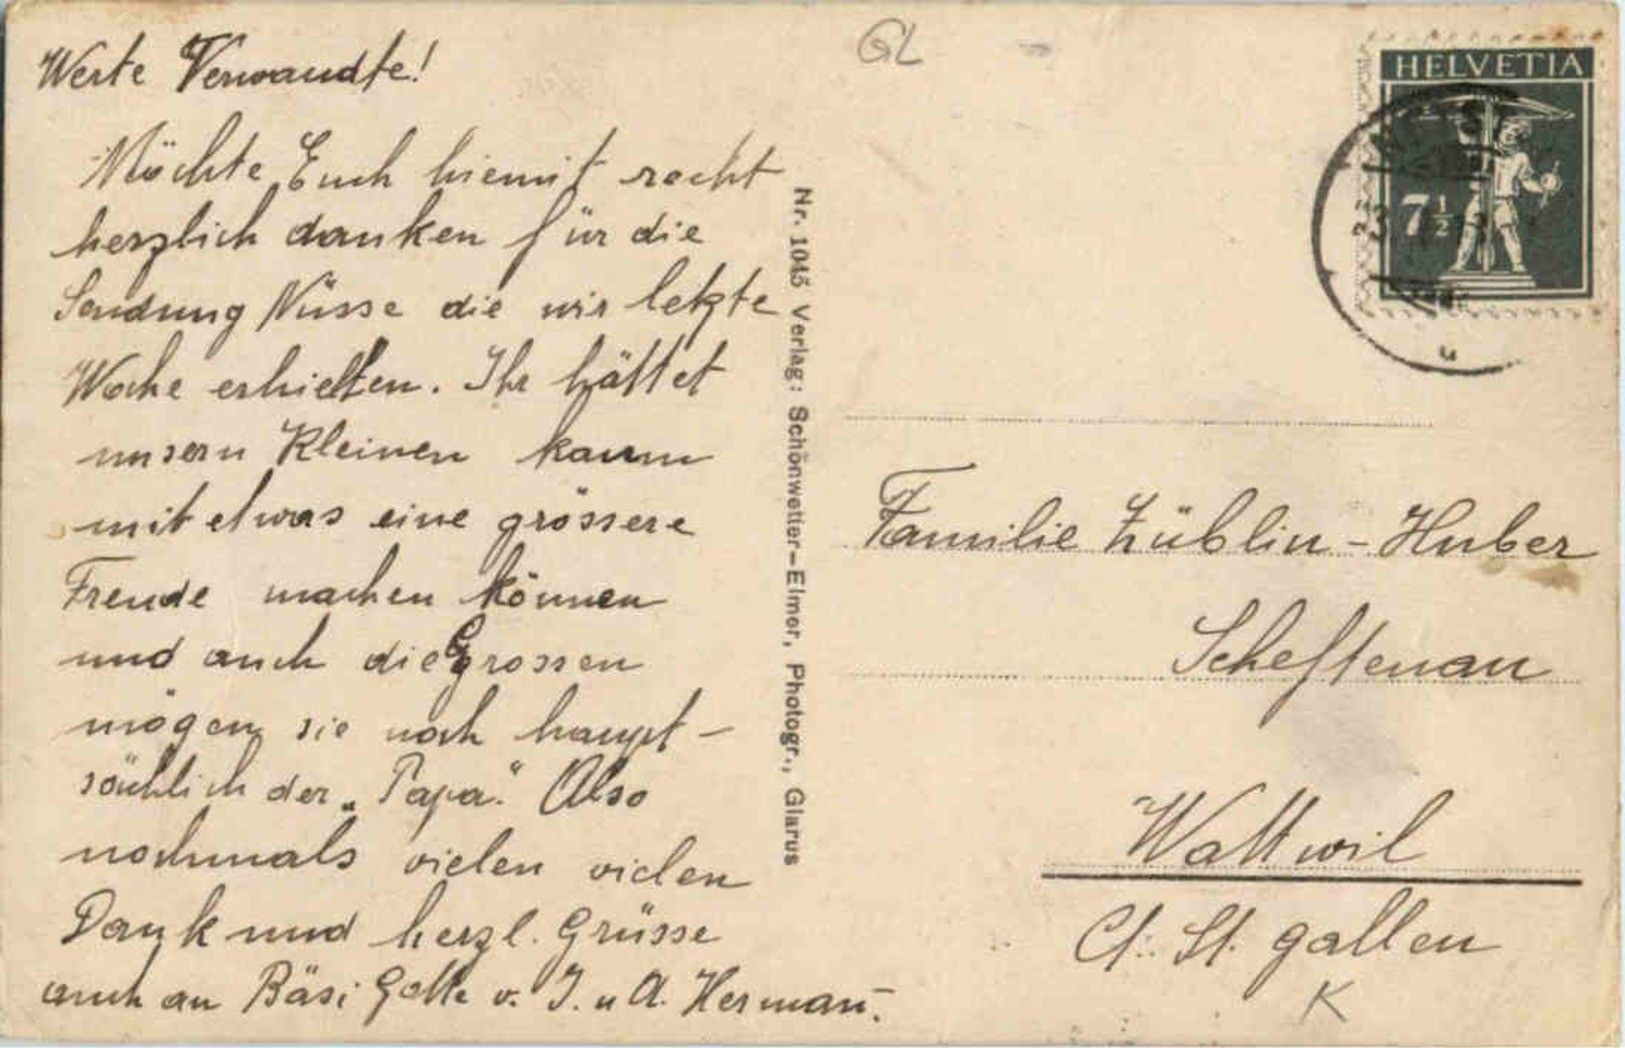 Werte Verwandte!
Möchte Euch hiemit recht
herzlich danken für die
Sendung Nüsse die wir letzte
Woche erhielten. Ihr hättet
unsern Kleinen kaum
mit etwas eine grössere
Freude machen können
und auch die Grossen
mögen sie noch haupt-
sächlich der „Papa“. Also
nochmals vielen vielen
Dank und herzl. Grüsse
auch an Bäsi v. J. u A. Hermann.
Nr. 1045 Verlag: Schönwetter-Elmer, Photogr., Glarus
GL
HELVETIA
7 1/2
Familie Züblin-Huber
Scheftenau
Wattwil
Ct. St. gallen
K